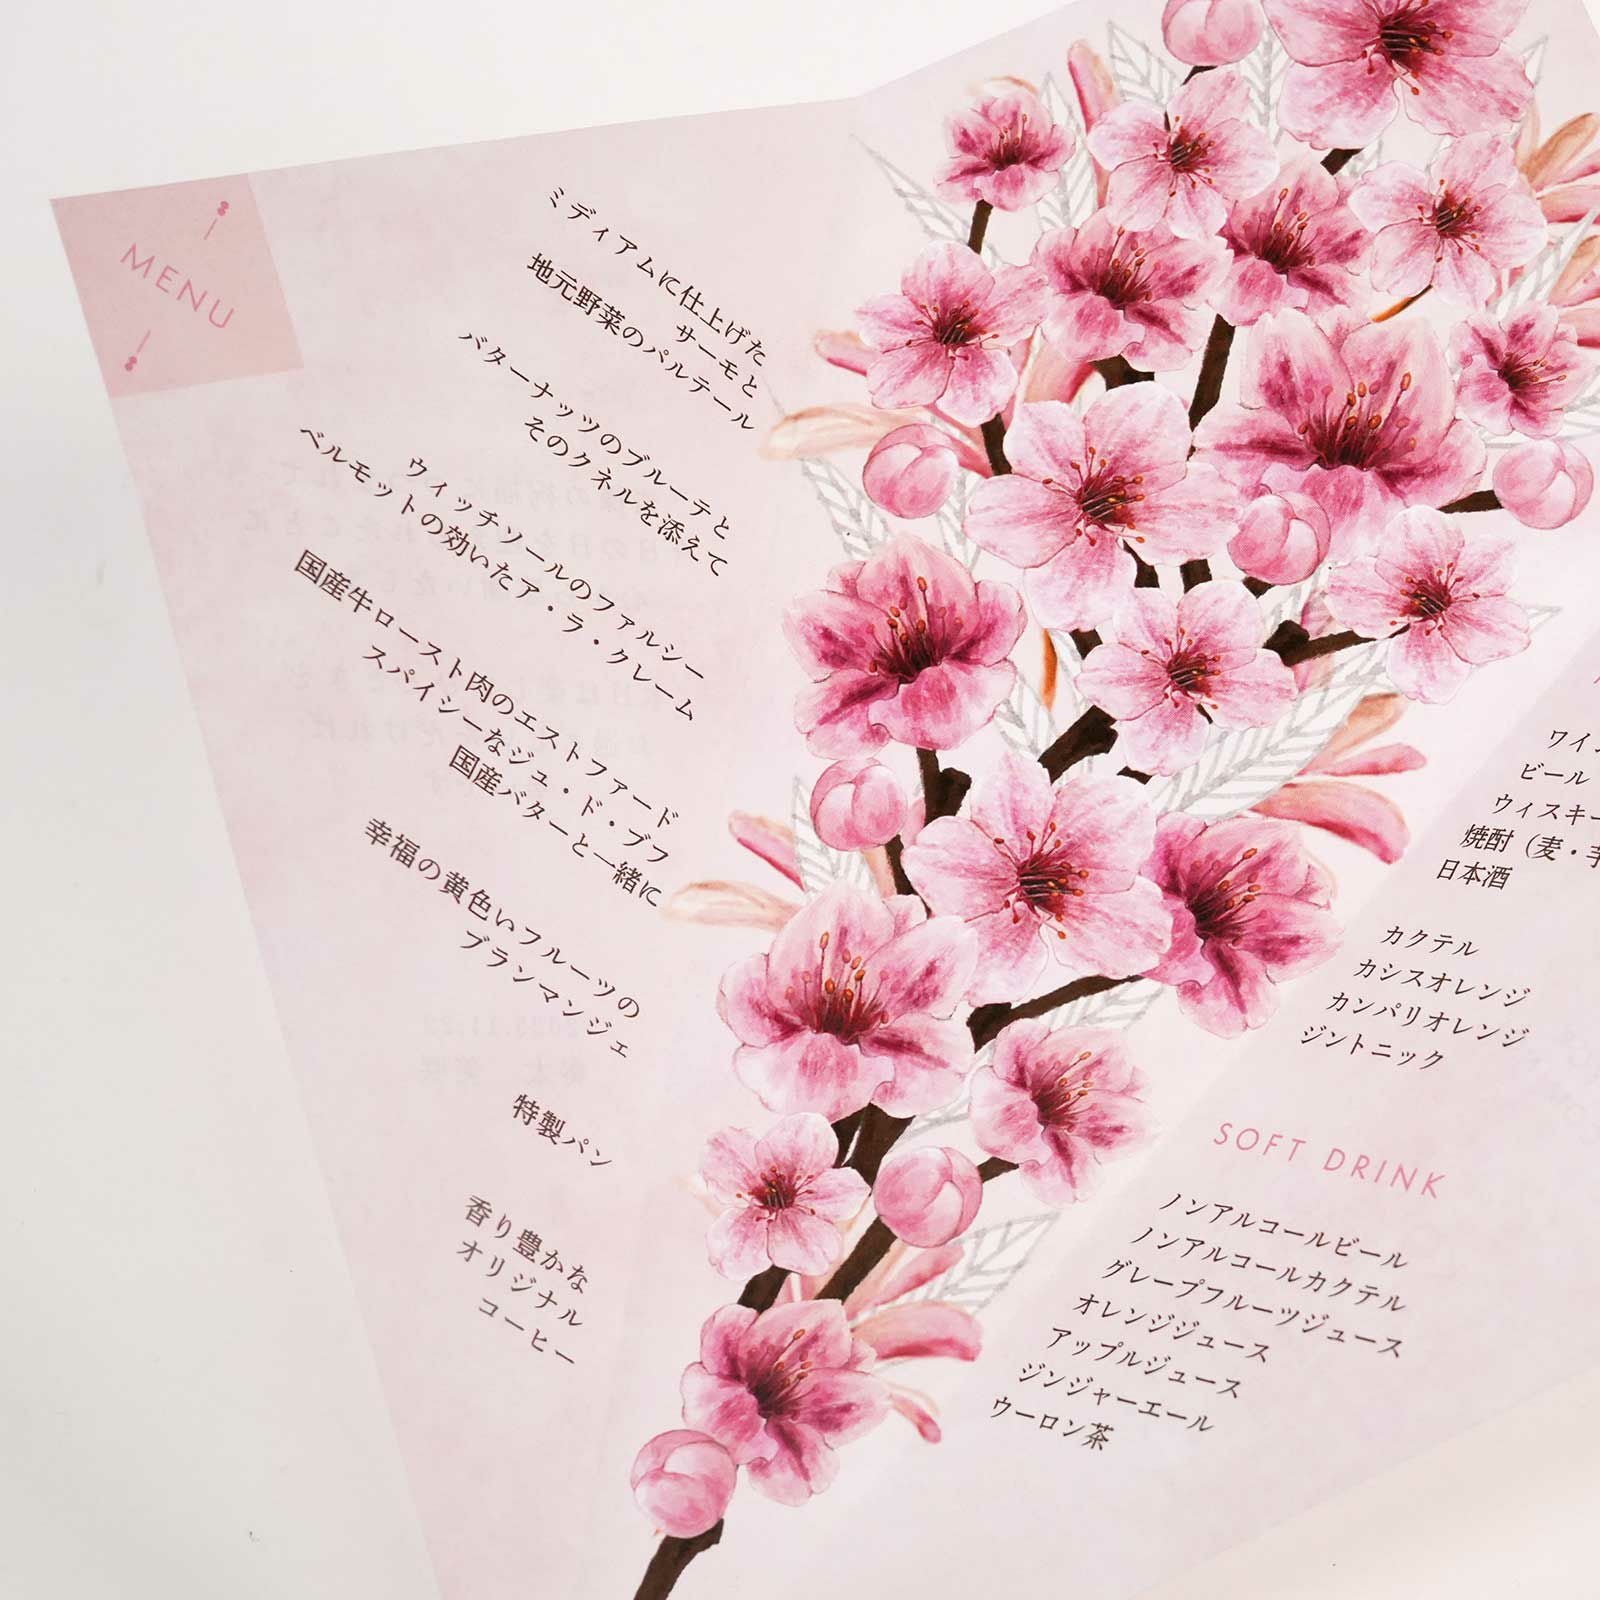 MENU
ミディアムに仕上げた
サーモと
地元野菜のパルテール
バターナッツのブルーテと
そのクネルを添えて
ウィッチソールのファルシー
ベルモットの効いたア・ラ・クレーム
国産牛ロースト肉のエストファード
スパイシーなジュ・ド・ブフ
国産バターと一緒に
幸福の黄色いフルーツの
ブランマンジェ
特製パン
香り豊かな
オリジナル
コーヒー
ワイ
ビール
ウィスキー
焼酎（麦・芋
日本酒
カクテル
カシスオレンジ
カンパリオレンジ
ジントニック
SOFT DRINK
ノンアルコールビール
ノンアルコールカクテル
グレープフルーツジュース
オレンジジュース
アップルジュース
ジンジャーエール
ウーロン茶